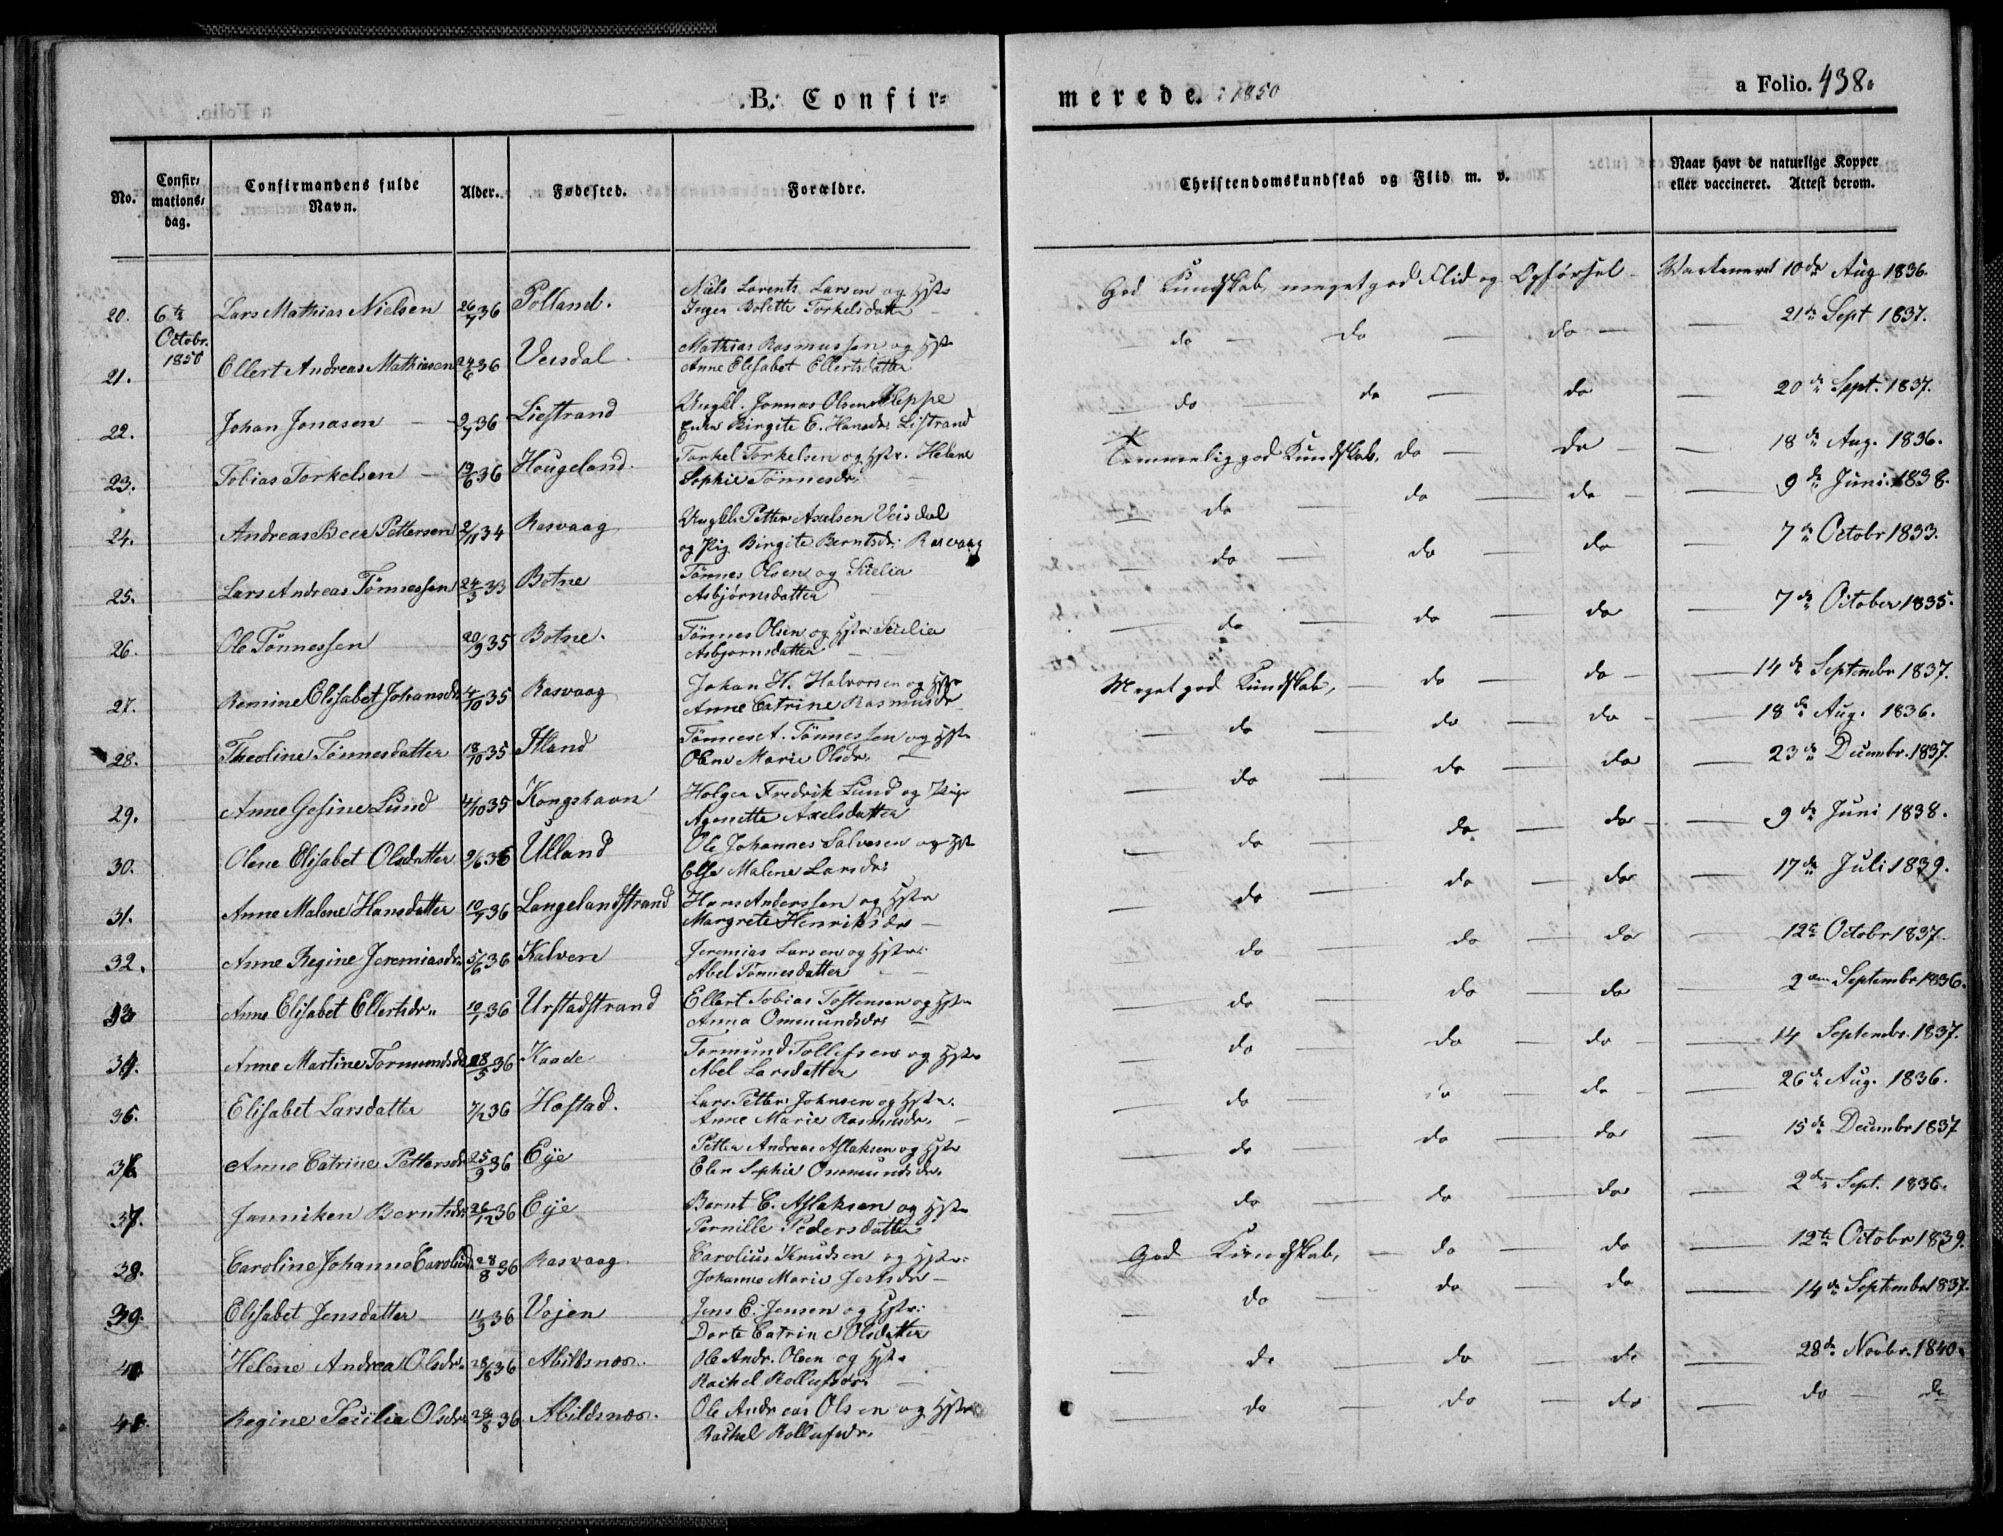 B. Confir=
merede. 1850
a Folio. 438.
No.
Confir-
mations-
dag.
Confirmandens fulde
Navn.
Alder.
Fødested.
Forældre.
Christendomskundskab og Flid m. v.
Naar havt de naturlige Kopper
eller vaccineret. Attest derom.
20. 6te Lars Mathias Nielsen 26/7 36 Polland. Niels Lorents Larsen og Hstr
Inger Bolette Torkelsdatter God Kundskab, meget god Flid og Opførsel - Vaccineret 10de Aug 1836.
Octobr.
1850
21. Ellert Andreas Mathiasen 24/6 36 Veisdal. Mathias Rasmussen og Hstr
Anne Elisabet Ellertsdatter do do do 21de Sept 1837.
22. Johan Jonasen 2/7 36 Listrand Ungkl. Jonnas Olsen Kleppe
Enke Birgite E. Hansdr. Listrand do do do 20de Sept. 1837.
23. Tobias Torkelsen 19/6 36 Hougeland. Torkel Torkelsen og Hstr. Helene
Sophie Tønnesdr. Temmelig god Kundskab, do do 18de Aug. 1836.
24. Andreas Beer Pettersen 2/11 34 Rasvaag Ungkl. Petter Axelsen Veisdal
og Pig. Birgite Berntsdr. Rasvaag do do do 9de Juni 1838.
25. Lars Andreas Tønnessen 24/5 33 Botne Tønnes Olsen og Siselia
Asbjørnsdatter do do do 7de Octobr 1833.
26. Ole Tønnessen 20/9 35 Botne. Tønnes Olsen og Hstr. Sicelia
Asbjørnsdatter do do do 7de October 1835.
27. Romine Elisabet Johansdr 4/10 35 Rasvaag Johan H. Halvorsen og Hstr
Anne Catrine Rasmusdr Meget god Kundskab, do do 14de Septembr 1837.
28. Theoline Tønnesdatter 18/10 35 Iland Tønnes A. Tønnessen og Hstr
Olene Marie Olsdr. do do do 18de Aug. 1836.
29. Anne Gesine Lund 4/10 35 Kongshavn Holger Fredrik Lund og Pig.
Agenette Axelsdatter do do do 23de Decembr. 1837.
30. Olene Elisabet Olsdatter 2/6 36 Ulland Ole Johannes Salvesen og Hst
Else Malene Larsdr. do do do 9de Juni 1838.
31. Anne Malene Hansdatter 10/7 36 Langelandstrand Hans Anderssen og Hstr
Margrete Henriksdr do do do 17de Juli 1839.
32. Anne Regine Jeremiasdr. 5/6 36 Kalven Jeremias Larsen og Hstr.
Abel Tønnesdatter do do do 12te Octobr 1837.
33 Anne Elisabet Ellertsdr. 10/1 36 Urstadstrand Ellert Tobias Tostensen og Hstr
Anna Ommundsdr do do do 2den Septembr 1836.
34. Anne Martine Tormundsdr 28/5 36 Kaade Tormund Tollefsen og Hstr
Abel Larsdatter do do do 14 Septembr. 1837.
35. Elisabet Larsdatter 7/12 36 Hæstad. Lars Petter Johnsen og Hstr.
Anne Marie Rasmusdr. do do do 26de Aug. 1836.
36. Anne Catrine Pettersdr 25/9 36 Eye Petter Andreas Aslaksen og Hstr
Elen Sophie Ommundsdr. do do do 15de Decembr 1837
37. Janniken Berntsdr 26/12 36 Eye Bernt E. Aslaksen og Hstr
Pernille Pedersdatter do do do 2den Sept. 1836.
38. Caroline Johanne Carolidr. 28/8 36 Rasvaag Carolius Knudsen og Hstr.
Johanne Marie Jensdr God Kundskab, do do 12te Octobr 1839.
39. Elisabet Jensdatter 11/9 36 Vojen Jens E. Jensen og Hstr.
Dorte Catrine Olsdatter do do do 14de Septembr 1837.
40 Helene Andrea Olsdr. 28/8 36 Abildsnæs. Ole Andr. Olsen og Hstr
Rachel Rollufsdr. do do do 28de Novbr. 1840.
41. Regine Sicilia Olsdr 28/8 36 Abildsnæs. Ole Andreas Olsen og Hstr
Rachel Rollufsdr. do do do do do